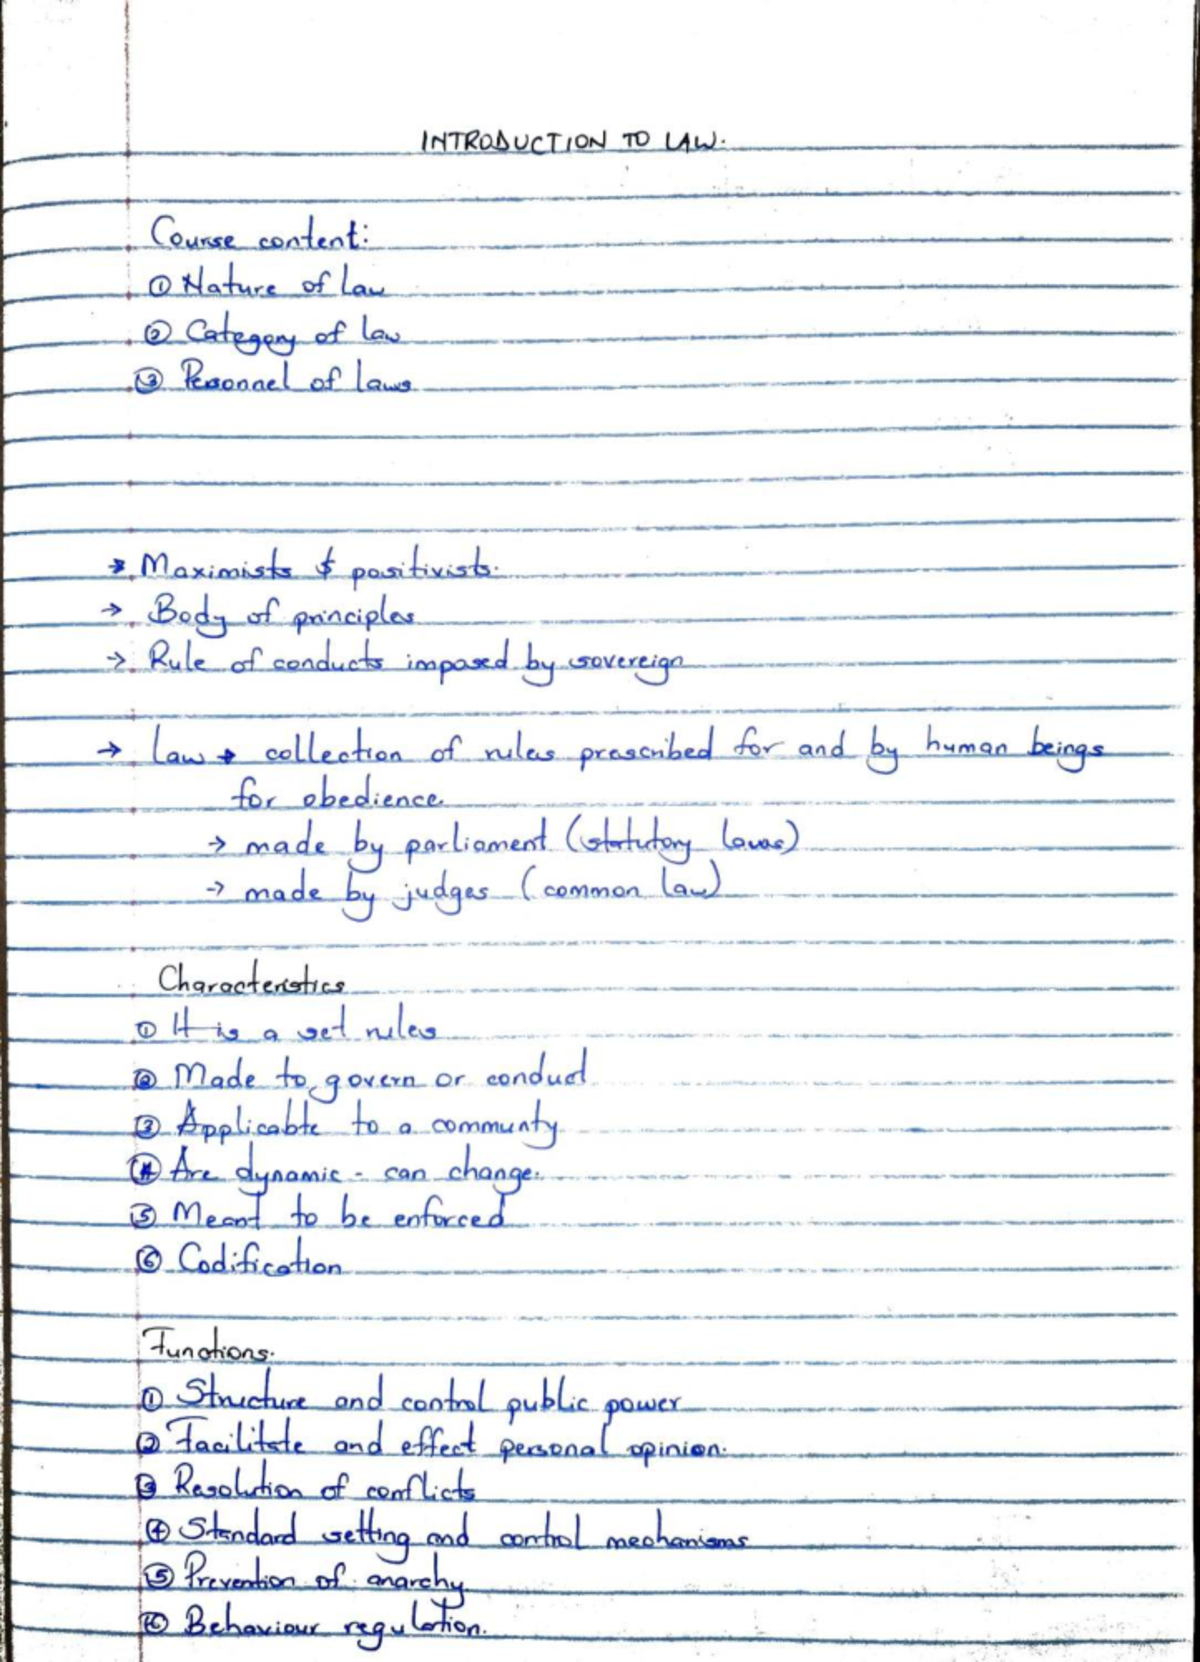 INTRODUCTION TO LAW.
Course content:
① Nature of law
② Category of law
③ Personnel of laws
→ Maximists & positivists.
→ Body of principles
→ Rule of conducts imposed by sovereign
→ law → collection of rules prescribed for and by human beings
for obedience.
→ made by parliament (statutory laws)
→ made by judges (common law)
Characteristics
① It is a set rules
② Made to govern or conduct
③ Applicable to a communty
④ Are dynamic - can change.
⑤ Meant to be enforced
⑥ Codification
Functions.
① Structure and control public power
② Facilitate and effect personal opinion.
③ Resolution of conflicts
④ Standard setting and control mechanisms
⑤ Prevention of anarchy
⑥ Behaviour regulation.